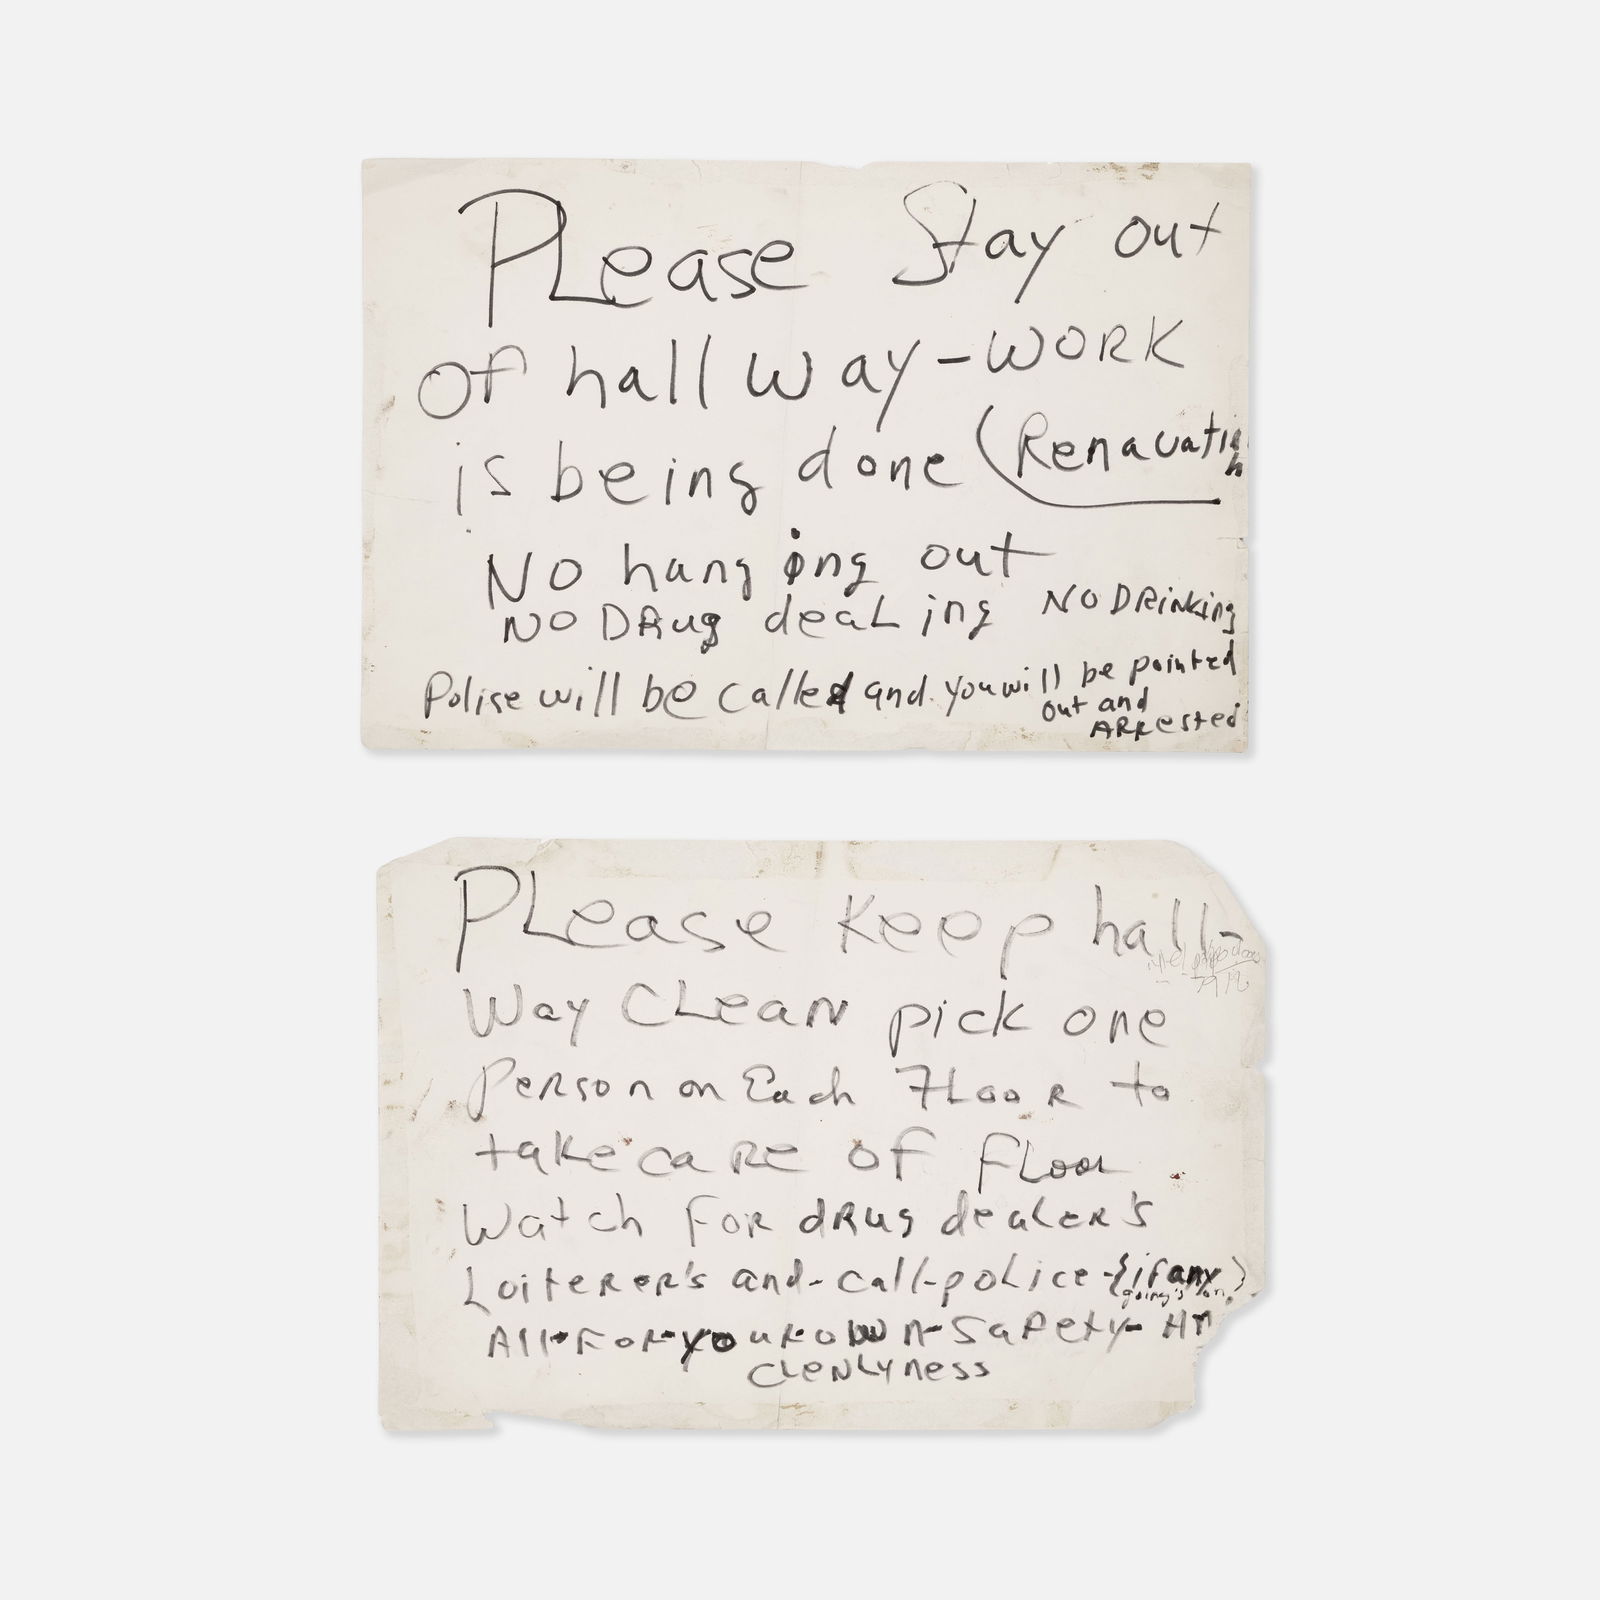 PLease Stay out
of hall way - WORK
is being done (Renavatin
No hanging out
NO DRug deaLing NO DRinking
Polise will be called and you will be pointed
out and
ARRested
PLease keep hall-
Way CLeaN pick one
Person on Each FLooR to
take caRe of fLoor
Watch FoR dRug deaLeR's
LoiteReR's and-call-poLice-{if any}
going's on
All-FoR-youR-own-Safety-
CLeNLyness